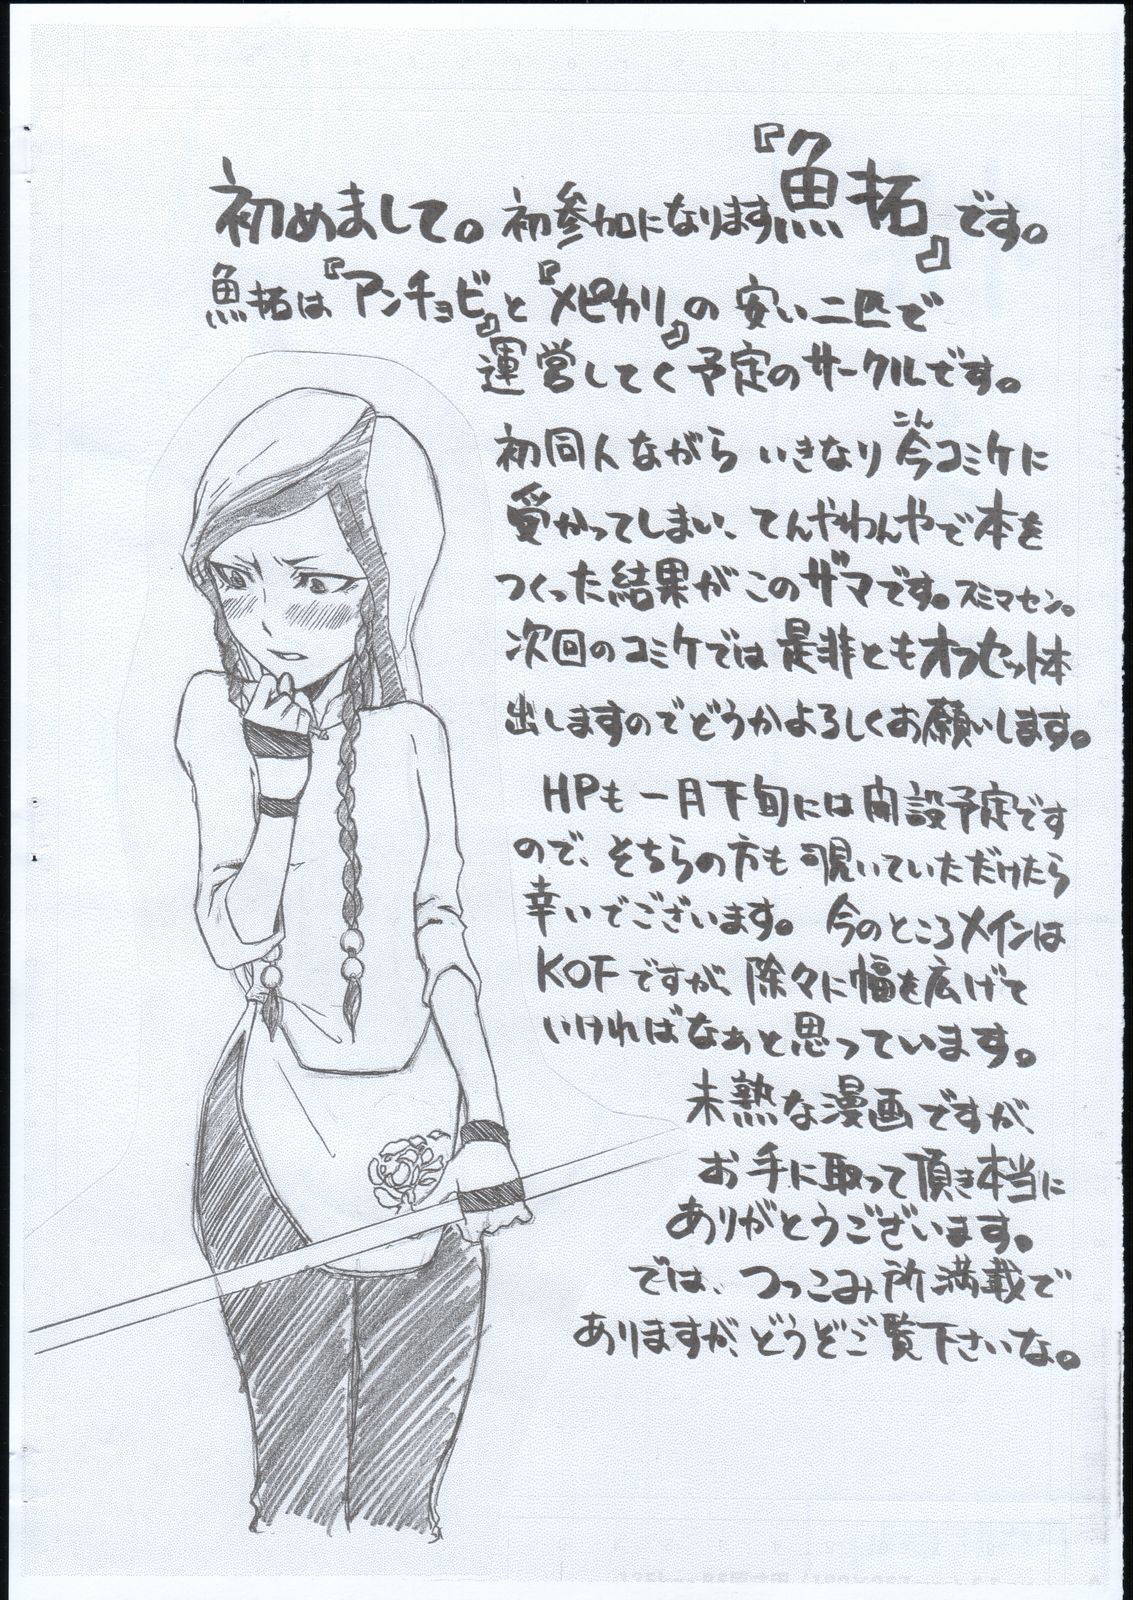 初めまして。初参加になります『魚拓』です。
魚拓は『アンチョビ』と『メピカリ』の安い二匹で
運営してく予定のサークルです。
初同人ながらいきなり今コミケに
こん
受かってしまい、てんやわんやで本を
つくった結果がこのザマです。スミマセン。
次回のコミケでは是非ともオフセット本
出しますのでどうかよろしくお願いします。
HPも一月下旬には開設予定です
ので、そちらの方も覗いていただけたら
幸いでございます。今のところメインは
KOFですが、除々に幅を広げて
いければなぁと思っています。
未熟な漫画ですが、
お手に取って頂き本当に
ありがとうございます。
では、つっこみ所満載で
ありますが、どうぞご覧下さいな。